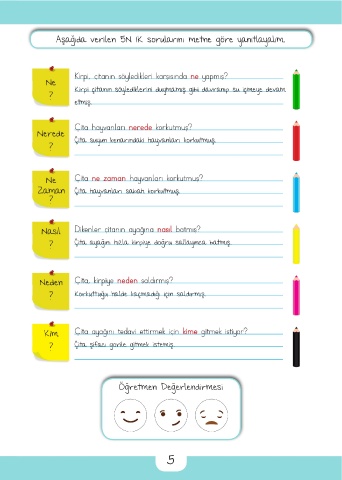 Aşağıda verilen 5N 1K sorularını metne göre yanıtlayalım.
Ne
?
Kirpi, çitanın söyledikleri karşısında ne yapmış?
Kirpi çitanın söylediklerini duymamış gibi davranıp su içmeye devam
etmiş.
Nerede
?
Çita hayvanları nerede korkutmuş?
Çita suyun kenarındaki hayvanları korkutmuş.
Ne
Zaman
?
Çita ne zaman hayvanları korkutmuş?
Çita hayvanları sabah korkutmuş.
Nasıl
?
Dikenler çitanın ayağına nasıl batmış?
Çita ayağını hızla kirpiye doğru sallayınca batmış.
Neden
?
Çita, kirpiye neden saldırmış?
Korkuttuğu hâlde kaçmadığı için saldırmış.
Kim
?
Çita ayağını tedavi ettirmek için kime gitmek istiyor?
Çita şifacı gorile gitmek istemiş.
Öğretmen Değerlendirmesi
5